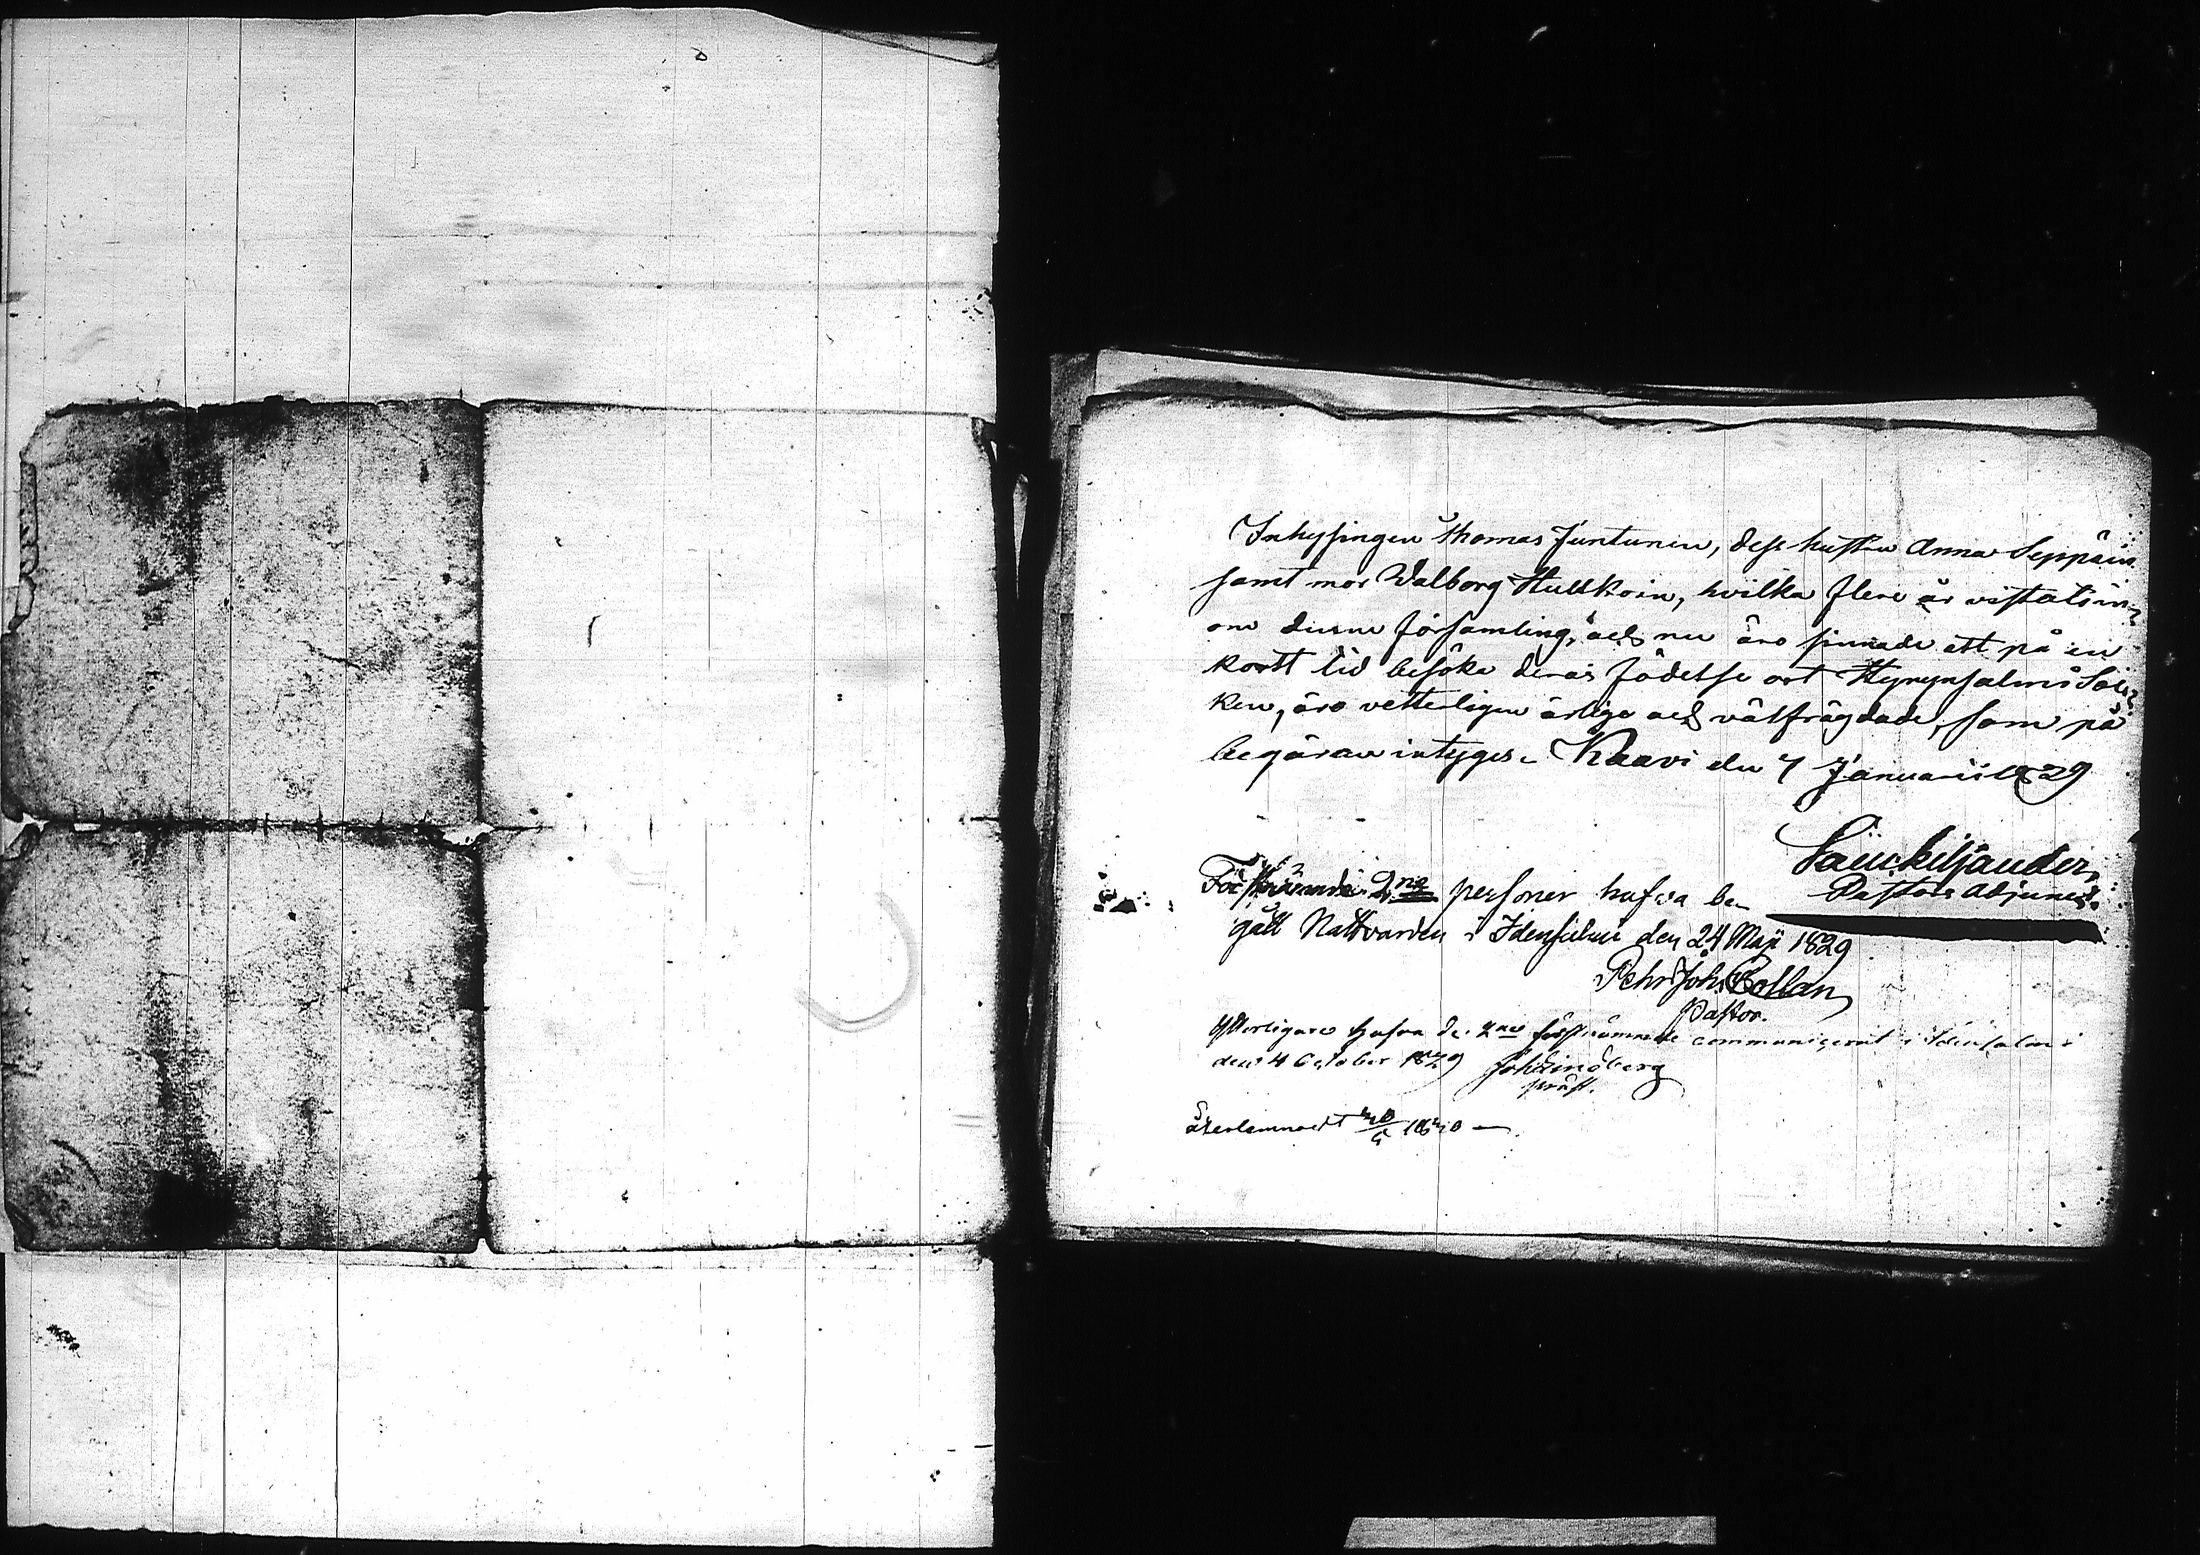 Inhysingen Thomas Juntunen, dess hustru Anna Seppäin
samt mor Walborg Hulkkoin, hvilka flere år vistats in¬
om denna församling, och nu äro sinnade att på en
kort tid besöka deras födelse ort Hyrynsalmi Soc¬
ken, äro vetterligen ärliga och välfrägdade, som på
begäran intyges. Kaavi den 7 Januarii 1829
Pastors adjunct.
Förstnämnde 2ne personer hafva be¬
gått Nattvarden i Idensalmi den 24 Maji 1829
Pehr Joh. Collan
Pastor.
Ytterligare hafva de 2ne förstnämnde communicerat i Idensalmi
den 4 October 1829 Joh Lindberg
präst.
återlemnadt 1830